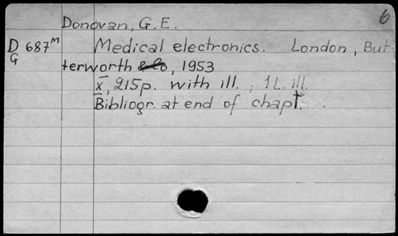 6
Donovan, G.E.
D 687ᴹ Medical electronics. London, But
G
terworth & Co, 1953
x, 215p. with ill. ; 1 L. ill.
Bibliogr. at end of chapt.